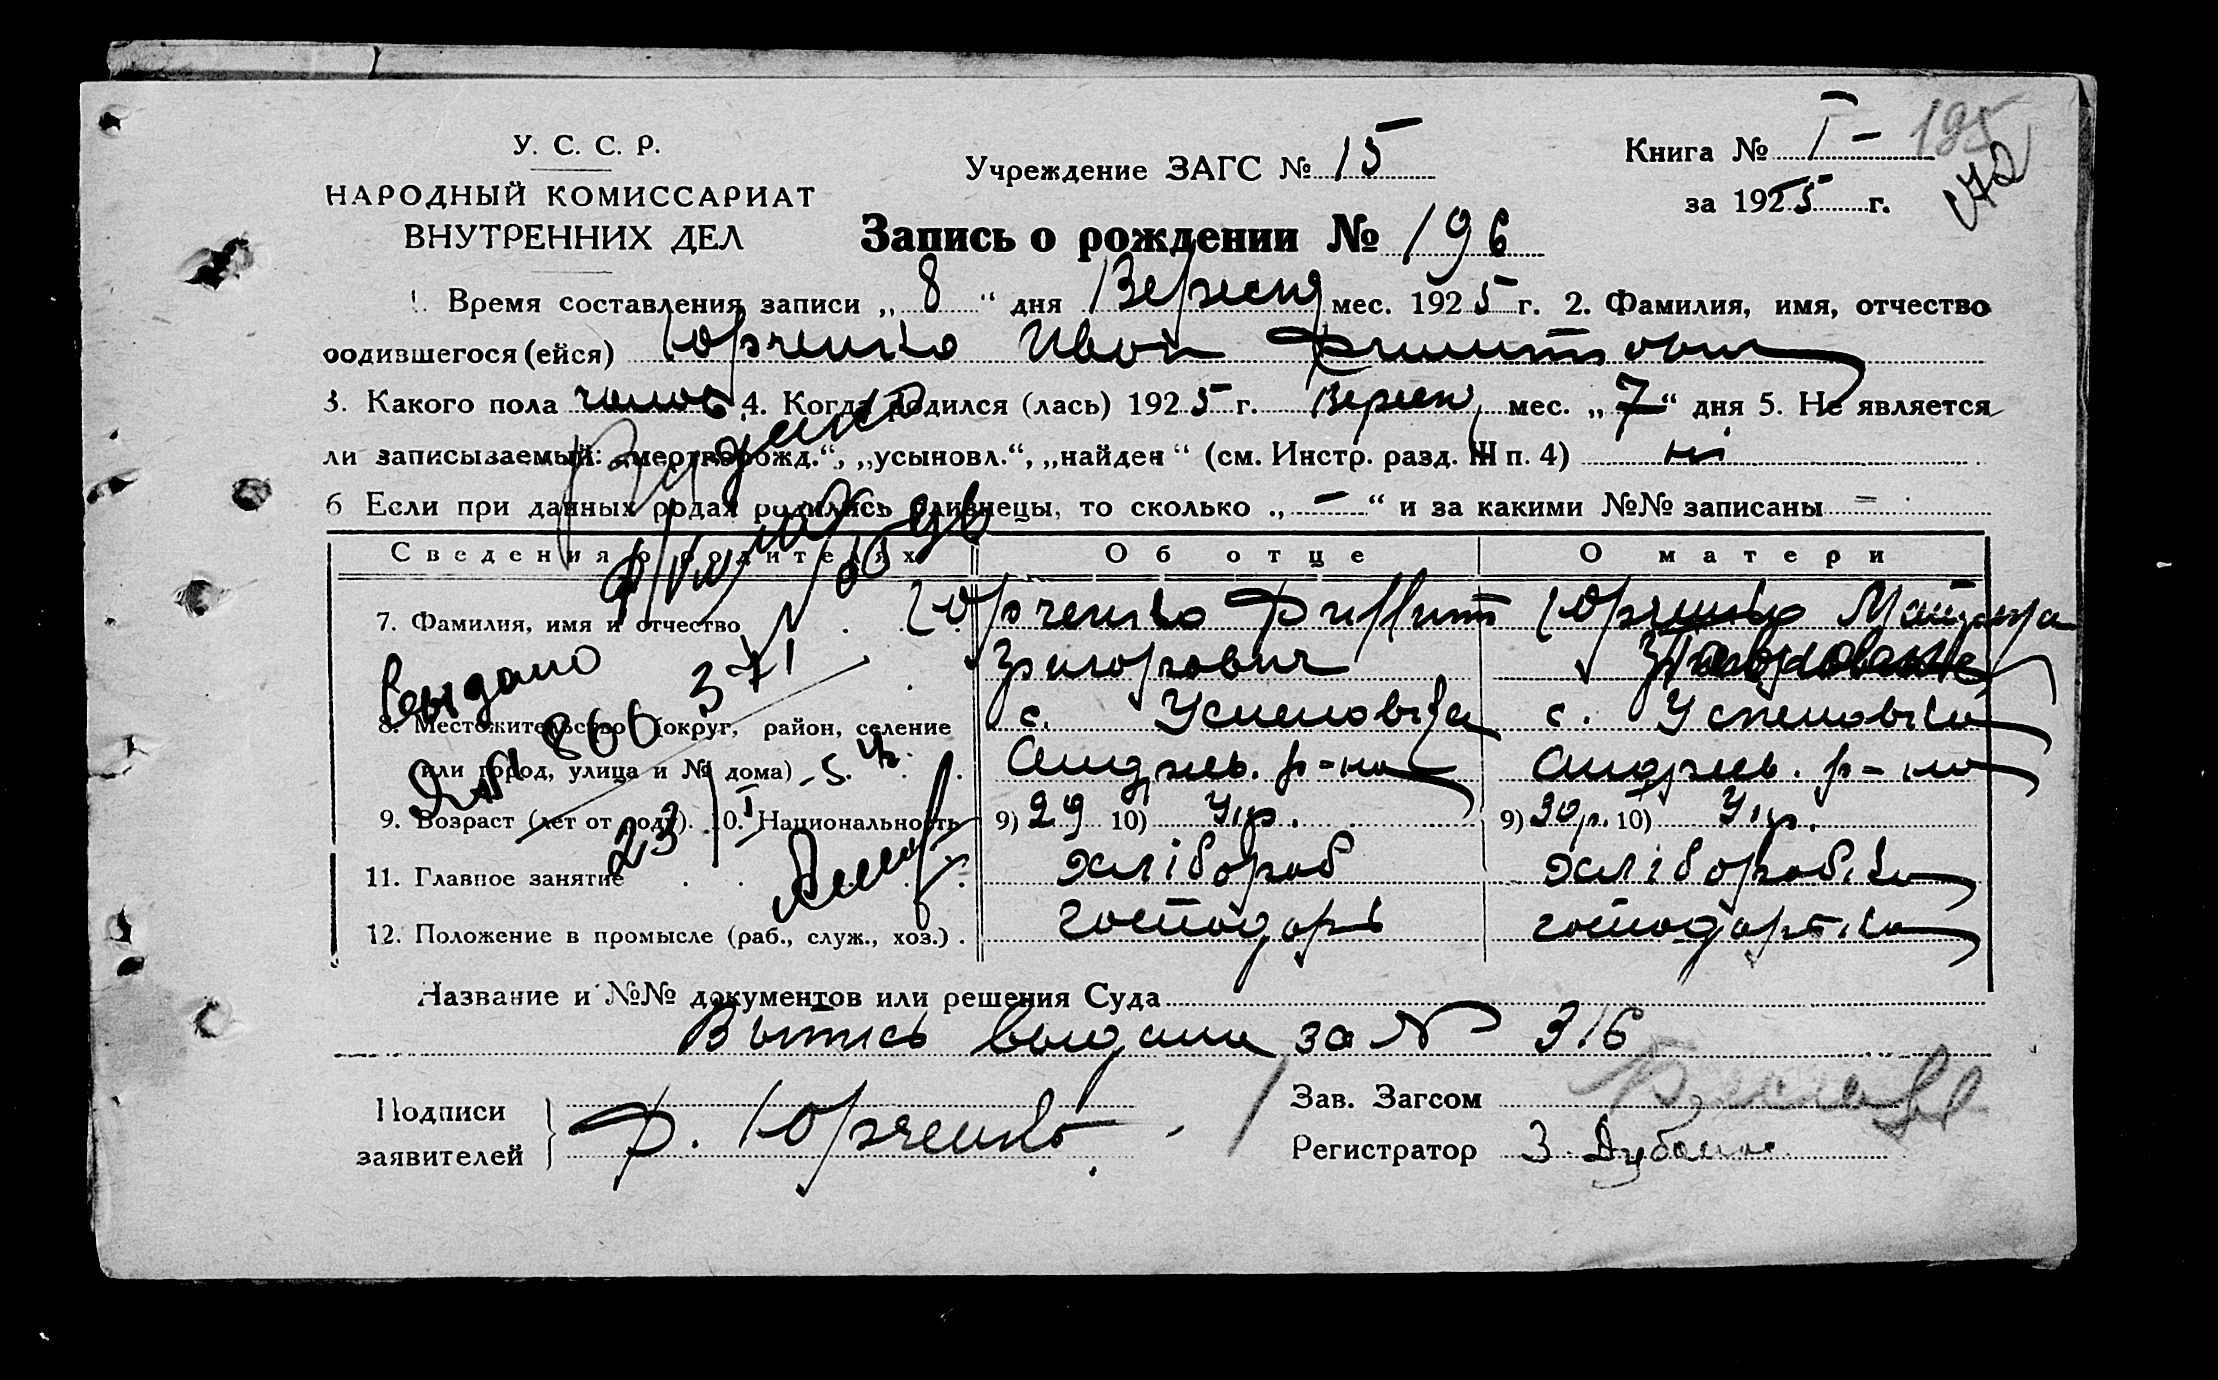 У. С. С. Р.
НАРОДНЫЙ КОМИССАРИАТ
ВНУТРЕННИХ ДЕЛ
Учреждение ЗАГС № 15
Книга № I - 195
за 1925 г.
Запись о рождении № 196
1. Время составления записи „ 8 “ дня Вересня мес. 1925 г. 2. Фамилия, имя, отчество
родившегося (ейся) Юрченко Иван
3. Какого пола чолов 4. Когда родился (лась) 1925 г. Вересн мес. „ 7 “ дня 5. Не является
ли записываемый: „мертворожд.“, „усыновл.“, „найден“ (см. Инстр. разд. III п. 4) ні
6 Если при данных родах родились близнецы, то сколько „ – “ и за какими №№ записаны =
Сведения о родителях Об отце О матери
7. Фамилия, имя и отчество Юрченко Филипп Юрченко
Григорович
выдано
371
8. Местожительство (округ, район, селение с. Успеновка с. Успеновка
или город, улица и № дома) Андреев. р-на Андреев. р-на
9. Возраст (лет от роду). 10. Национальность 9) 29 10) Укр. 9) 30 р. 10) Укр.
23
11. Главное занятие хлібороб хліборобка
12. Положение в промысле (раб., служ., хоз.) . господарь господарька
Название и №№ документов или решения Суда
Выпись выдана за № 316
Подписи
заявителей
Ф. Юрченко
Зав. Загсом
Регистратор З.